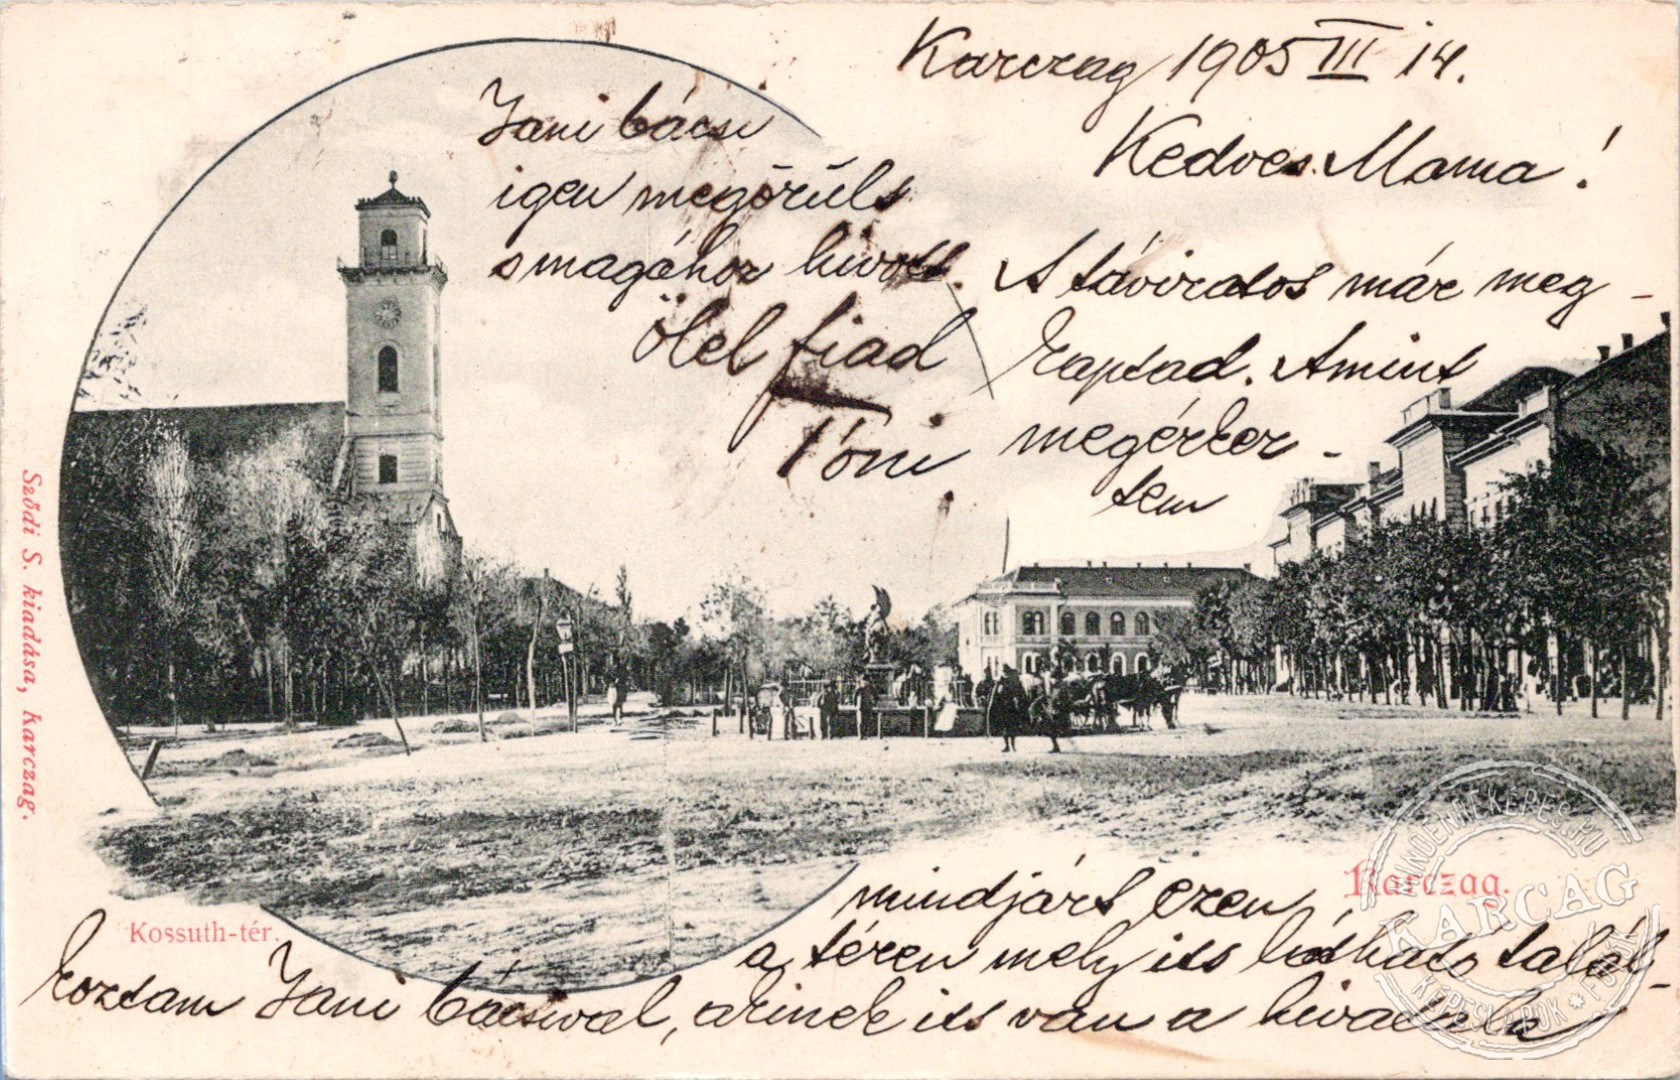 Karczag 1905 III 14.
Kedves Mama!
A táviratos már meg-
kaptad. Amint
megérkez-
tem
mindjárt ezen
a téren mely itt látható talál-
koztam Jani bácsival, akinek itt van a hivatala
Jani bácsi
igen megörült
s magához hivott.
Ölel fiad
Tóni
Kossuth-tér.
Karczag.
Sződi S. kiadása, Karczag.
MINDENKEPES.HU
KARCAG
KÉPESLAPOK